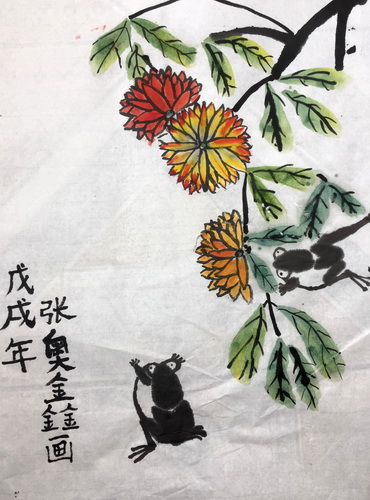 戊戌年
张奥鑫画